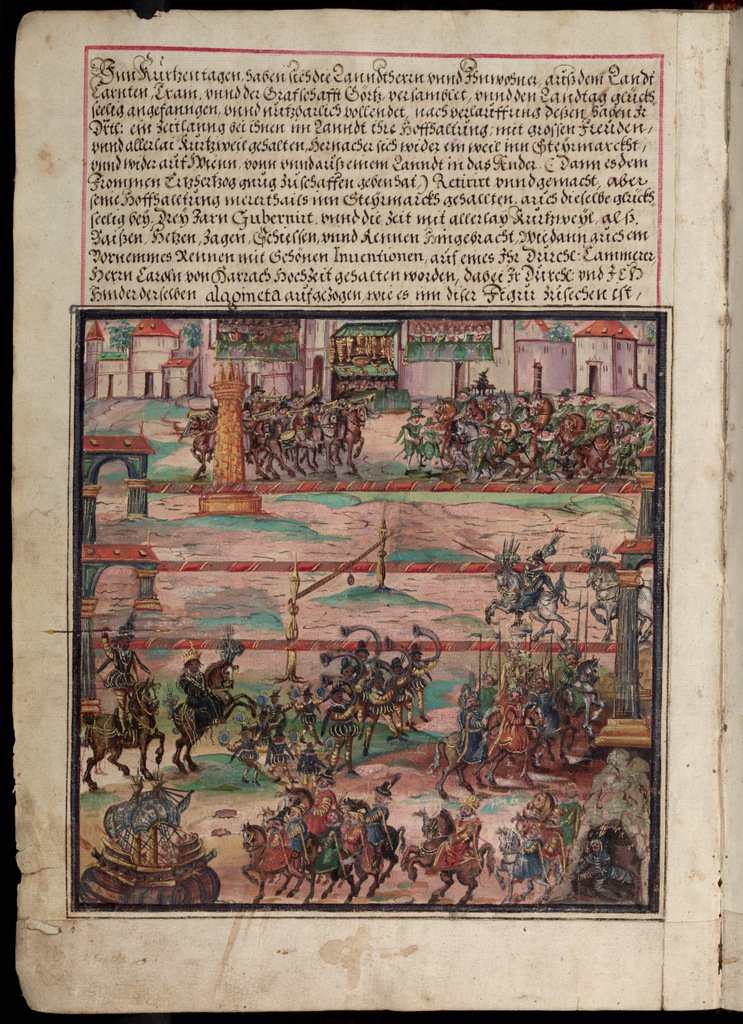 Inn Kurtzen tagen, haben sich die Lanndtherrn vnnd Inwohner, auß dem Landt
Cärnten, Cram, vnnd der Grafschafft Görtz, versamblet, vnnd den Landtag glückh
seelig angefanngen, vnnd nutzbarlich vollendet, nach verlauffung deßen, haben Ir
Drtl: ein Zeitlanng bei ihnen im Lanndt ihre Hoffhaltung, mit grossen Freüden,
vnnd allerlai Kurtzweil gehalten, Hernacher sich wider ein weil inn Steÿrmarckht,
vnnd wider auf Wienn, vonn vnnd auß einem Lanndt in das Ander (Dann es dem
Frommen Ertzhertzog gnug zu schaffen geben hat) Retirirt vnnd gemacht, aber
seine Hoffhalttung merertthails inn Steÿrmarckh gehallten, auch dieselbe glückh
seelig beÿ Gubernirt, vnnd die Zeit mit allerlaÿ Kurtzweÿl, alß
Baißen, Hetzen, Jagen, Schiessen, vnnd Rennen hingebracht, Wie dann auch ein
Vornemmes Rennen mit Schönen Inuentionen, auf eines Ihr Dürchl: Cammerer
Herrn Caroln von Harrach Hochzeit gehalten worden, dabei Ir Dürchl: vnd ICH
hinder derselben aufgezogen, wie es inn diser Figur zusechen ist,